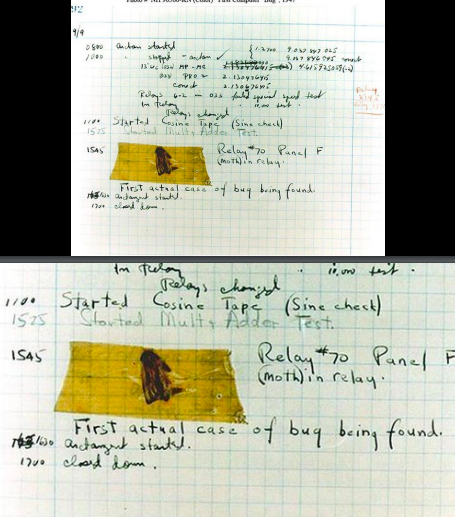 92
9/9
0800 antan started
1000 " stopped - antan ✓
{ 1.2700 9.037 847 025
9.037 846 995 correct
13" uc (032) MP-MC 2.130476415 4.615925059(-2)
033 PRO 2 2.130476415
correct 2.130676415
Relays 6-2 in 033 failed special speed test
In Relay " 10.000 test.
Relays changed
Relay
1100 Started Cosine Tape (Sine check)
1525 Started Mult + Adder Test.
1545 Relay #70 Panel F
(moth) in relay.
First actual case of bug being found.
1630 antangent started.
1700 closed down.
In Relay " 10.000 test.
Relays changed
1100 Started Cosine Tape (Sine check)
1525 Started Mult + Adder Test.
1545 Relay #70 Panel F
(moth) in relay.
First actual case of bug being found.
1630 antangent started.
1700 closed down.